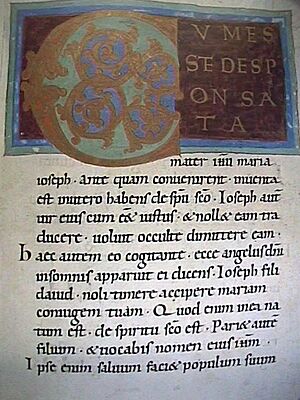 CVMES
SEDESP
ONSA
TA
mater ihu maria
ioseph· Ante quam convenirent· inventa
est in utero habens de spu sco· Ioseph aut
vir eius cum eet iustus· & noll& eam tra
ducere· voluit occulte dimittere eam·
haec autem eo cogitante· ecce angelus dni
in somnis apparuit ei dicens· Ioseph fili
david· noli timere accipere mariam
coniugem tuam· Quod enim in ea na
tum est· de spiritu sco est· Pari& aut
filium· & vocabis nomen eius ihm·
Ipse enim salvum faci& populum suum